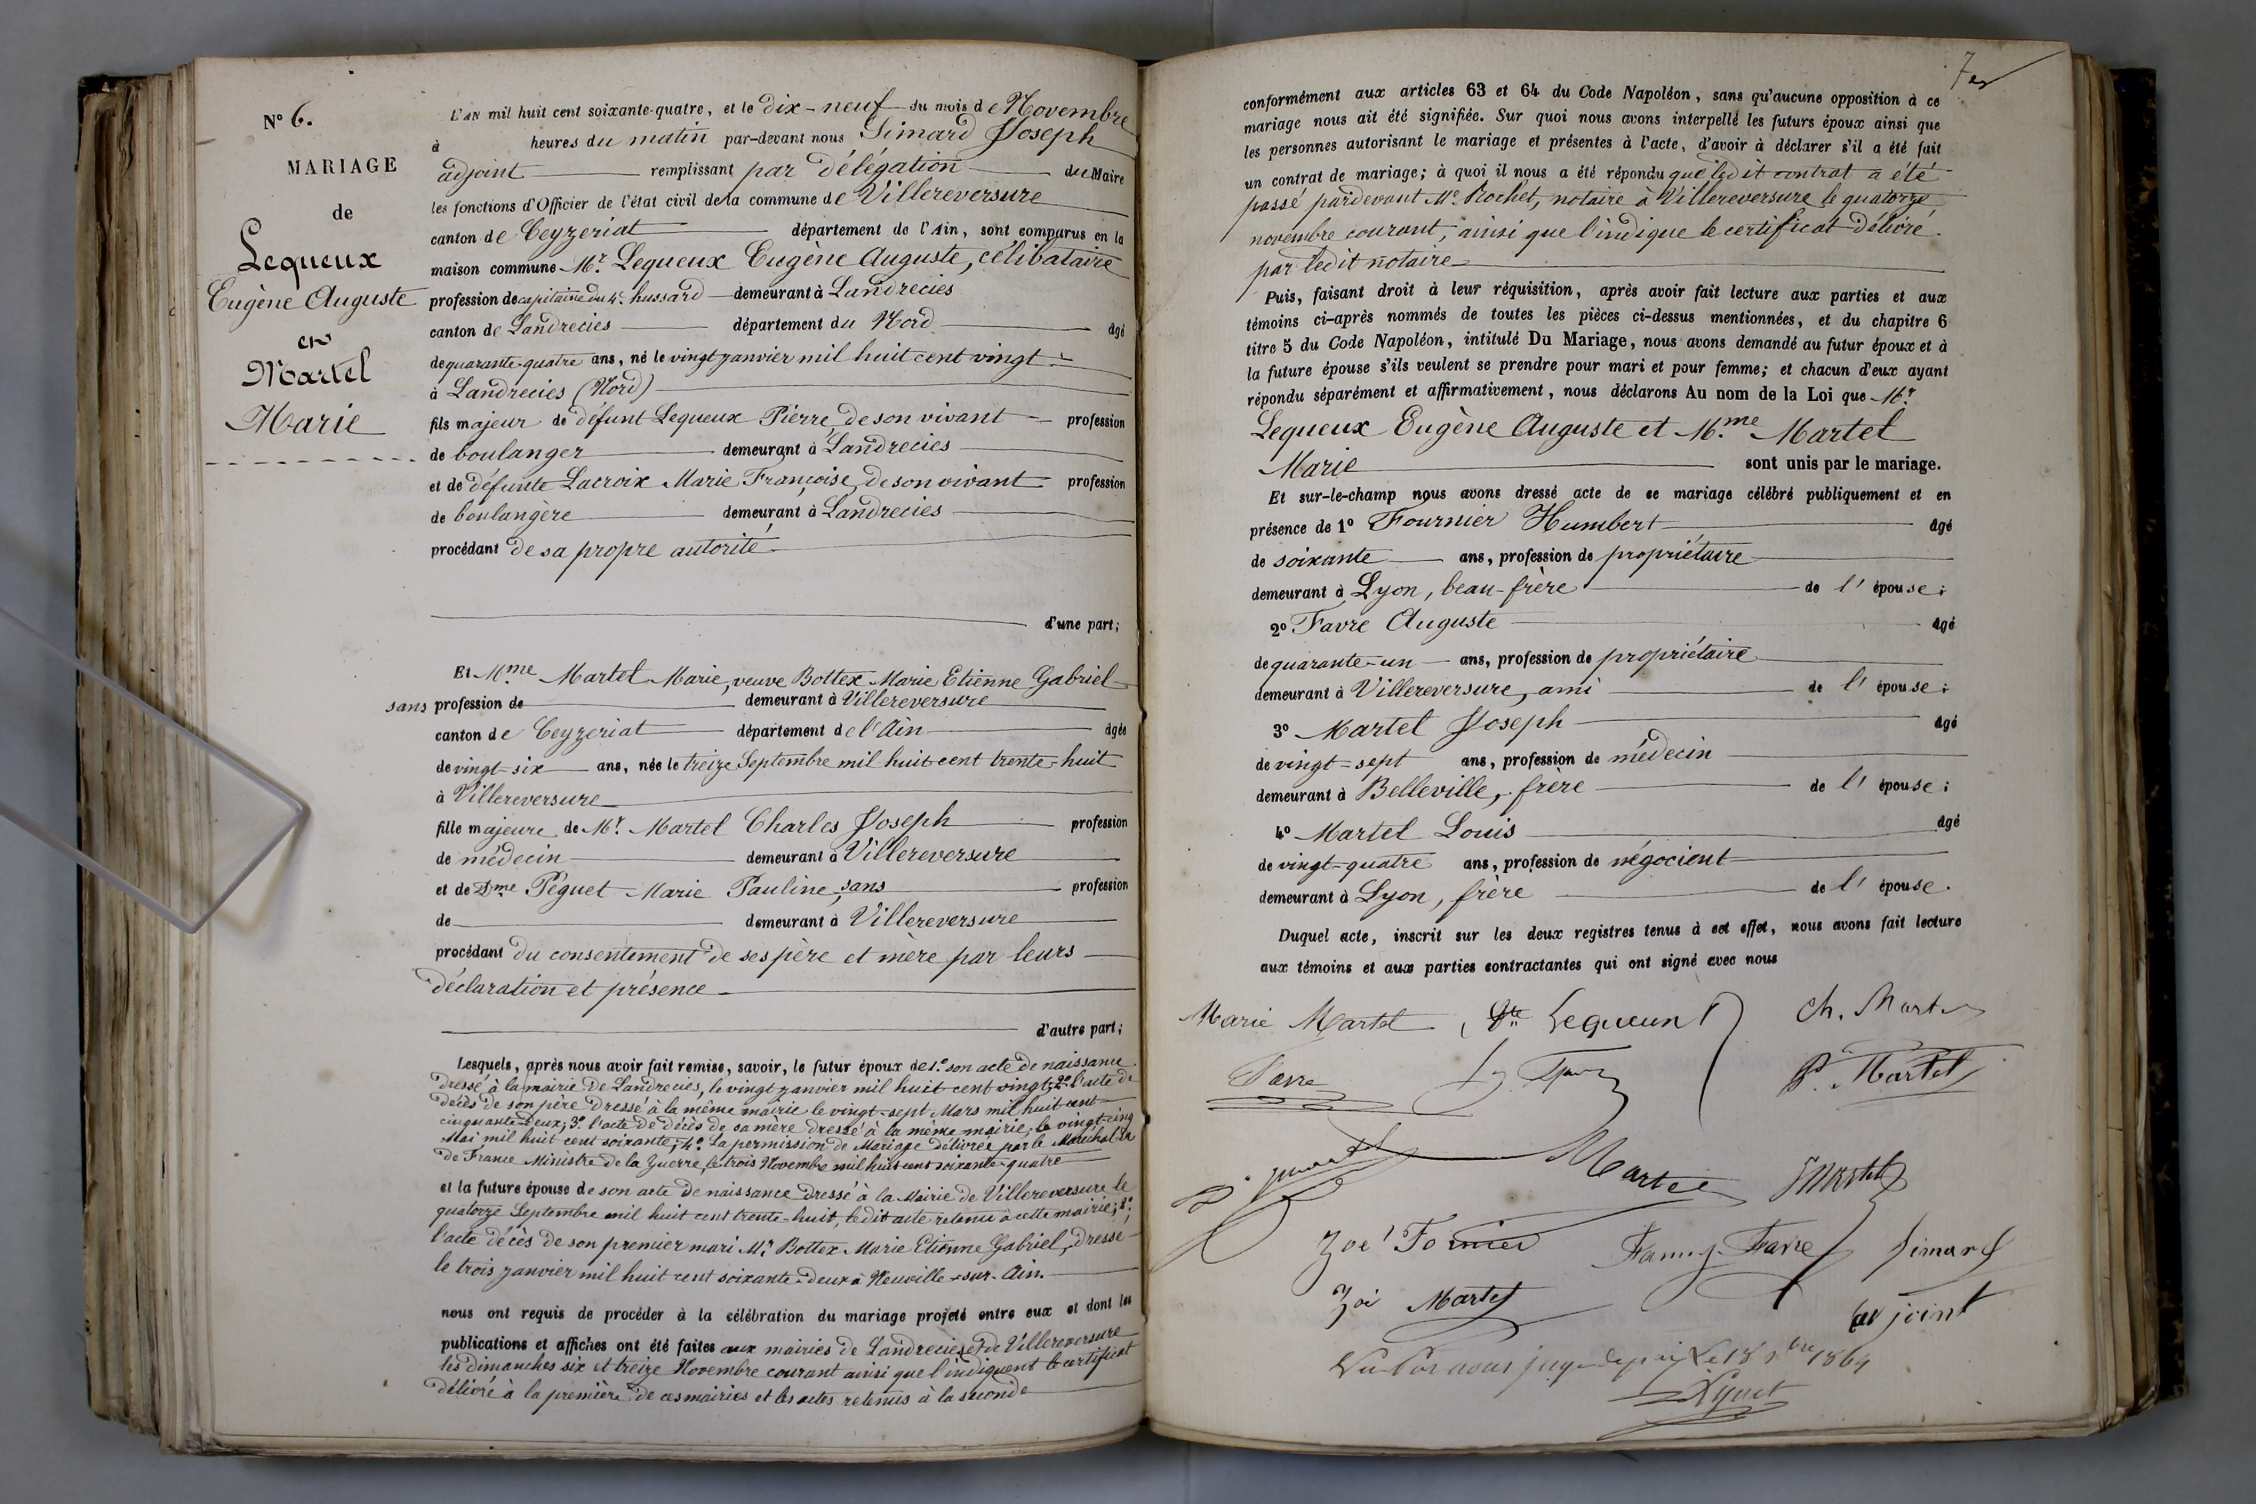 N° 6.
MARIAGE
de
Lequeux
Eugène Auguste
et
Martel
Marie
L'AN mil huit cent soixante-quatre, et le dix-neuf du mois de Novembre
à heures du matin par-devant nous Simard Joseph
adjoint remplissant par délégation du Maire
les fonctions d'Officier de l'état civil de la commune de Villereversure
canton de Ceyzeriat département de l'Ain, sont comparus en la
maison commune Mr. Lequeux Eugène Auguste, célibataire
profession de capitaine du 4e. hussard demeurant à Landrecies
canton de Landrecies département du Nord âgé
de quarante-quatre ans, né le vingt janvier mil huit cent vingt
à Landrecies (Nord)
fils majeur de défunt Lequeux Pierre, de son vivant profession
de boulanger demeurant à Landrecies
et de défunte Lacroix Marie Françoise, de son vivant profession
de boulangère demeurant à Landrecies
procédant de sa propre autorité
d'une part;
Et Mme Martel Marie, veuve Bottex Marie Etienne Gabriel
sans profession de demeurant à Villereversure
canton de Ceyzeriat département de l'Ain âgée
de vingt-six ans, née le treize Septembre mil huit cent trente-huit
à Villereversure
fille majeure de Mr. Martel Charles Joseph profession
de médecin demeurant à Villereversure
et de Dme Péguet Marie Pauline, sans profession
de demeurant à Villereversure
procédant du consentement de ses père et mère par leurs
déclaration et présence
d'autre part;
Lesquels, après nous avoir fait remise, savoir, le futur époux de 1° son acte de naissance
dressé à la mairie de Landrecies, le vingt janvier mil huit cent vingt; 2° l'acte de
décès de son père dressé à la même mairie le vingt-sept Mars mil huit cent
cinquante-deux; 3° l'acte de décès de sa mère dressé à la même mairie, le vingt-cinq
Mai mil huit cent soixante; 4° La permission de Mariage délivrée par le Maréchal
de France Ministre de la Guerre, le trois Novembre mil huit cent soixante-quatre
et la future épouse de son acte de naissance dressé à la Mairie de Villereversure le
quatorze Septembre mil huit cent trente-huit, ledit acte retenu à cette mairie; 2°
l'acte décès de son premier mari Mr. Bottex Marie Etienne Gabriel, dressé
le trois janvier mil huit cent soixante-deux à Neuville-sur-Ain.
nous ont requis de procéder à la célébration du mariage projeté entre eux et dont les
publications et affiches ont été faites aux mairies de Landrecies et de Villereversure
les dimanches six et treize Novembre courant ainsi que l'indiquent le certificat
délivré à la première de ces mairies et les actes retenus à la seconde
conformément aux articles 63 et 64 du Code Napoléon, sans qu'aucune opposition à ce
mariage nous ait été signifiée. Sur quoi nous avons interpellé les futurs époux ainsi que
les personnes autorisant le mariage et présentes à l'acte, d'avoir à déclarer s'il a été fait
un contrat de mariage; à quoi il nous a été répondu que ledit contrat a été
passé pardevant Me. Rochet, notaire à Villereversure le quatorze
novembre courant, ainsi que l'indique le certificat délivré
par ledit notaire
Puis, faisant droit à leur réquisition, après avoir fait lecture aux parties et aux
témoins ci-après nommés de toutes les pièces ci-dessus mentionnées, et du chapitre 6
titre 5 du Code Napoléon, intitulé Du Mariage, nous avons demandé au futur époux et à
la future épouse s'ils veulent se prendre pour mari et pour femme; et chacun d'eux ayant
répondu séparément et affirmativement, nous déclarons Au nom de la Loi que Mr.
Lequeux Eugène Auguste et Mme Martel
Marie sont unis par le mariage.
Et sur-le-champ nous avons dressé acte de ce mariage célébré publiquement et en
présence de 1° Fournier Humbert âgé
de soixante ans, profession de propriétaire
demeurant à Lyon, beau-frère de l'épouse;
2° Favre Auguste âgé
de quarante-un ans, profession de propriétaire
demeurant à Villereversure, ami de l'épouse;
3° Martel Joseph âgé
de vingt-sept ans, profession de médecin
demeurant à Belleville, frère de l'épouse;
4° Martel Louis âgé
de vingt-quatre ans, profession de négocient
demeurant à Lyon, frère de l'épouse.
Duquel acte, inscrit sur les deux registres tenus à cet effet, nous avons fait lecture
aux témoins et aux parties contractantes qui ont signé avec nous
Marie Martel Lequeux Ch. Martel
Favre Martel
Martel JMartel
Zoé Fornier Fanny Favre Simard
Zoé Martel adjoint
Vu par nous juge de paix le 18 1864